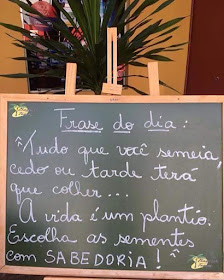 Frase do dia:
"Tudo que você semeia,
cedo ou tarde terá
que colher...
A vida é um plantio.
Escolha as sementes
com SABEDORIA!"